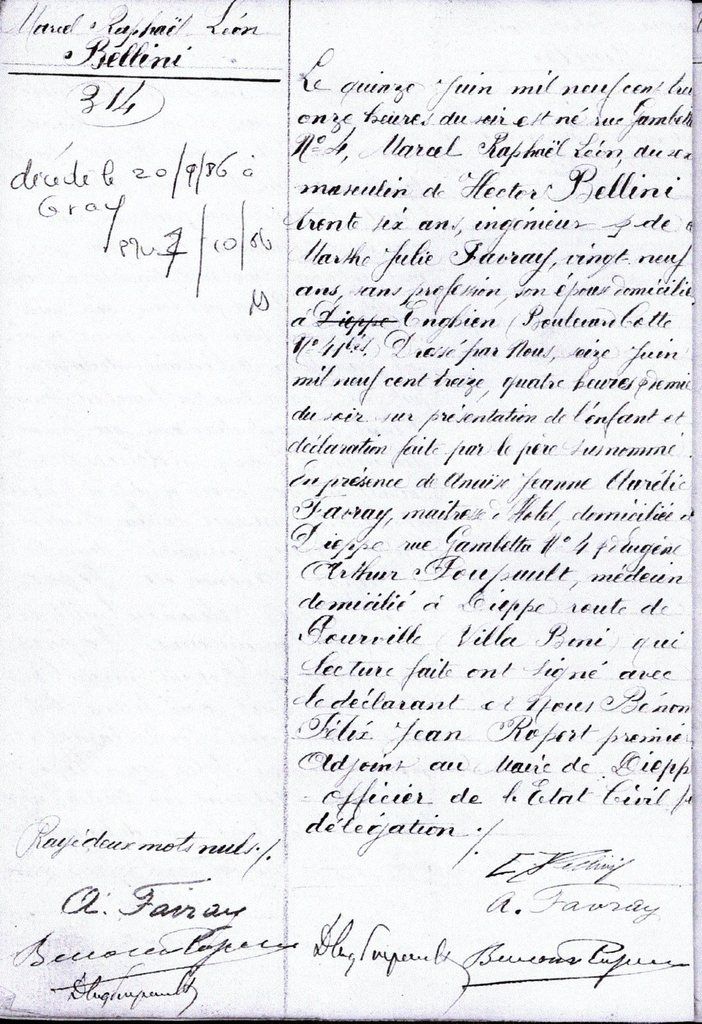 Marcel Raphaël Léon
Bellini
314
décédé le 20/9/86 à
Gray
10/86
Le quinze Juin mil neuf cent tre
onze heures du soir est né rue Gambett
N° 4, Marcel Raphaël Léon, du sexe
masculin de Hector Bellini
trente six ans, ingénieur & de
Marthe Julie Favray, vingt neuf
ans, sans profession, son épouse domiciliés
à Dieppe Enghien (Boulevard Cotte
N° 41 bis). Dressé par Nous, seize Juin
mil neuf cent treize, quatre heures & demie
du soir sur présentation de l'enfant et
déclaration faite par le père susnommé.
En présence de Jeanne Aurélie
Favray, maîtresse d'Hôtel, domiciliée à
Dieppe rue Gambetta N° 4 & d'Eugène
Arthur Foupault, médecin
domicilié à Dieppe route de
Pourville (Villa Beni) qui
lecture faite ont signé avec
le déclarant et Nous Bénoni
Félix Jean Ropert premier
Adjoint au Maire de Diepp
officier de l'Etat Civil p
délégation ./.
Rayé deux mots nuls ./.
A. Favray
A. Favray